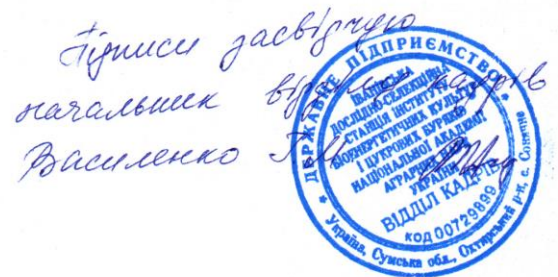 Підписи засвідчую
начальник відділу кадрів
Василенко
ДЕРЖАВНЕ ПІДПРИЄМСТВО
ІВАНІВСЬКА
ДОСЛІДНО-СЕЛЕКЦІЙНА
СТАНЦІЯ ІНСТИТУТУ
БІОЕНЕРГЕТИЧНИХ КУЛЬТУР
І ЦУКРОВИХ БУРЯКІВ
НАЦІОНАЛЬНОЇ АКАДЕМІЇ
АГРАРНИХ НАУК
УКРАЇНИ
ВІДДІЛ КАДРІВ
КОД 00729899
* Україна, Сумська обл., Охтирський р-н, с. Сонячне *